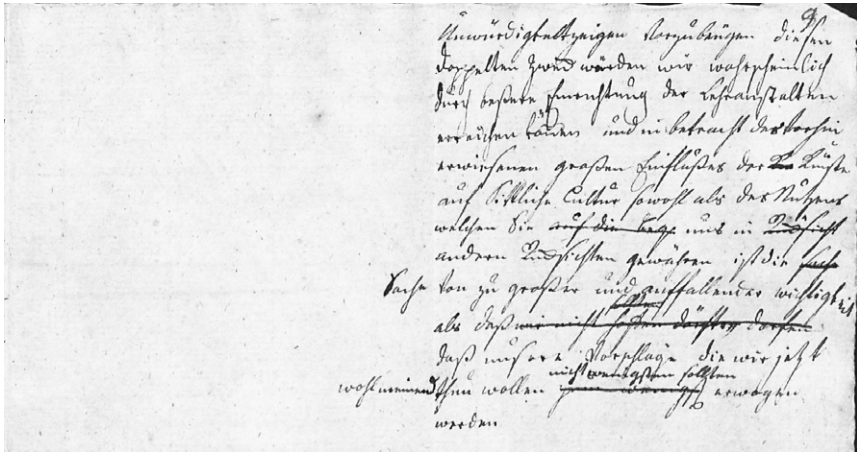 Unwürdigkeitzeigen Vorzubeugen diesen
doppelten Zweck würden wir wahrscheinlich
durch beßere Einrichtung der Lehranstalten
erreichen können und in betracht des Vorhin
erwiesenen großen Einflußes der Künste
auf Sittliche Cultur sowohl als des Nutzens
welchen Sie auf die uns in Rücksicht
andern Rücksichten gewähren ist die sache
Sache von zu großer und auffallender wichtigkeit
sollten
als daß wir nicht hoffen dörften dorfen
daß unsere Vorschläge die wir jetzt
nicht wenigsten sollten
wohlmeinend thun wollen erwogen
werden